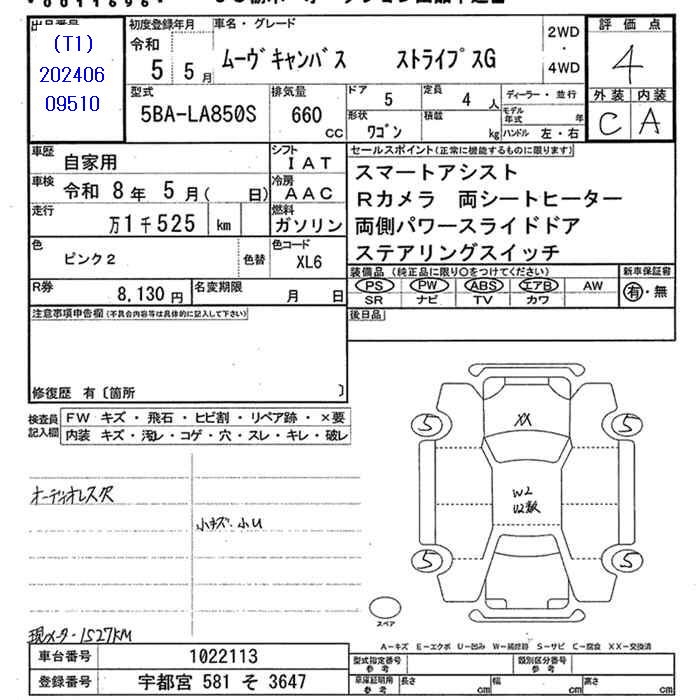 出品番号
(T1)
202406
09510
初度登録年月
令和
5 5月
車名・グレード
ムーヴキャンバス ストライプスG
2WD
・
4WD
評価点
4
外装 内装
C A
型式
5BA-LA850S
排気量
660
CC
ドア
5
定員
4 人
ディーラー・並行
形状
ワゴン
積載
kg
モデル年式 年
ハンドル 左・右
車歴
自家用
シフト
IAT
車検
令和 8年 5月( 日)
冷房
AAC
走行
万1千525 km
燃料
ガソリン
色
ピンク2
色替
色コード
XL6
R券
8,130円
名変期限
月 日
セールスポイント(正常に機能するものに限ります)
スマートアシスト
Rカメラ 両シートヒーター
両側パワースライドドア
ステアリングスイッチ
装備品 (純正品に限り○をつけてください)
PS PW ABS エアB AW
SR ナビ TV カワ
新車保証書
有・無
後日品
注意事項申告欄(不具合内容等は具体的に記入して下さい)
修復歴 有〔箇所 〕
検査員
記入欄
FW キズ・飛石・ヒビ割・リペア跡・×要
内装 キズ・汚レ・コゲ・穴・スレ・キレ・破レ
オーディオレス穴
小キズ・小U
現メーター1527KM
5 5
XX
W2
U2数
5 5
スペア
A-キズ E-エクボ U-凹み W-補修跡 S-サビ C-腐食 XX-交換済
車台番号
1022113
登録番号
宇都宮 581 そ 3647
型式指定番号
参考
類別区分番号
参考
車庫証明用
参考
長さ cm
幅 cm
高さ cm